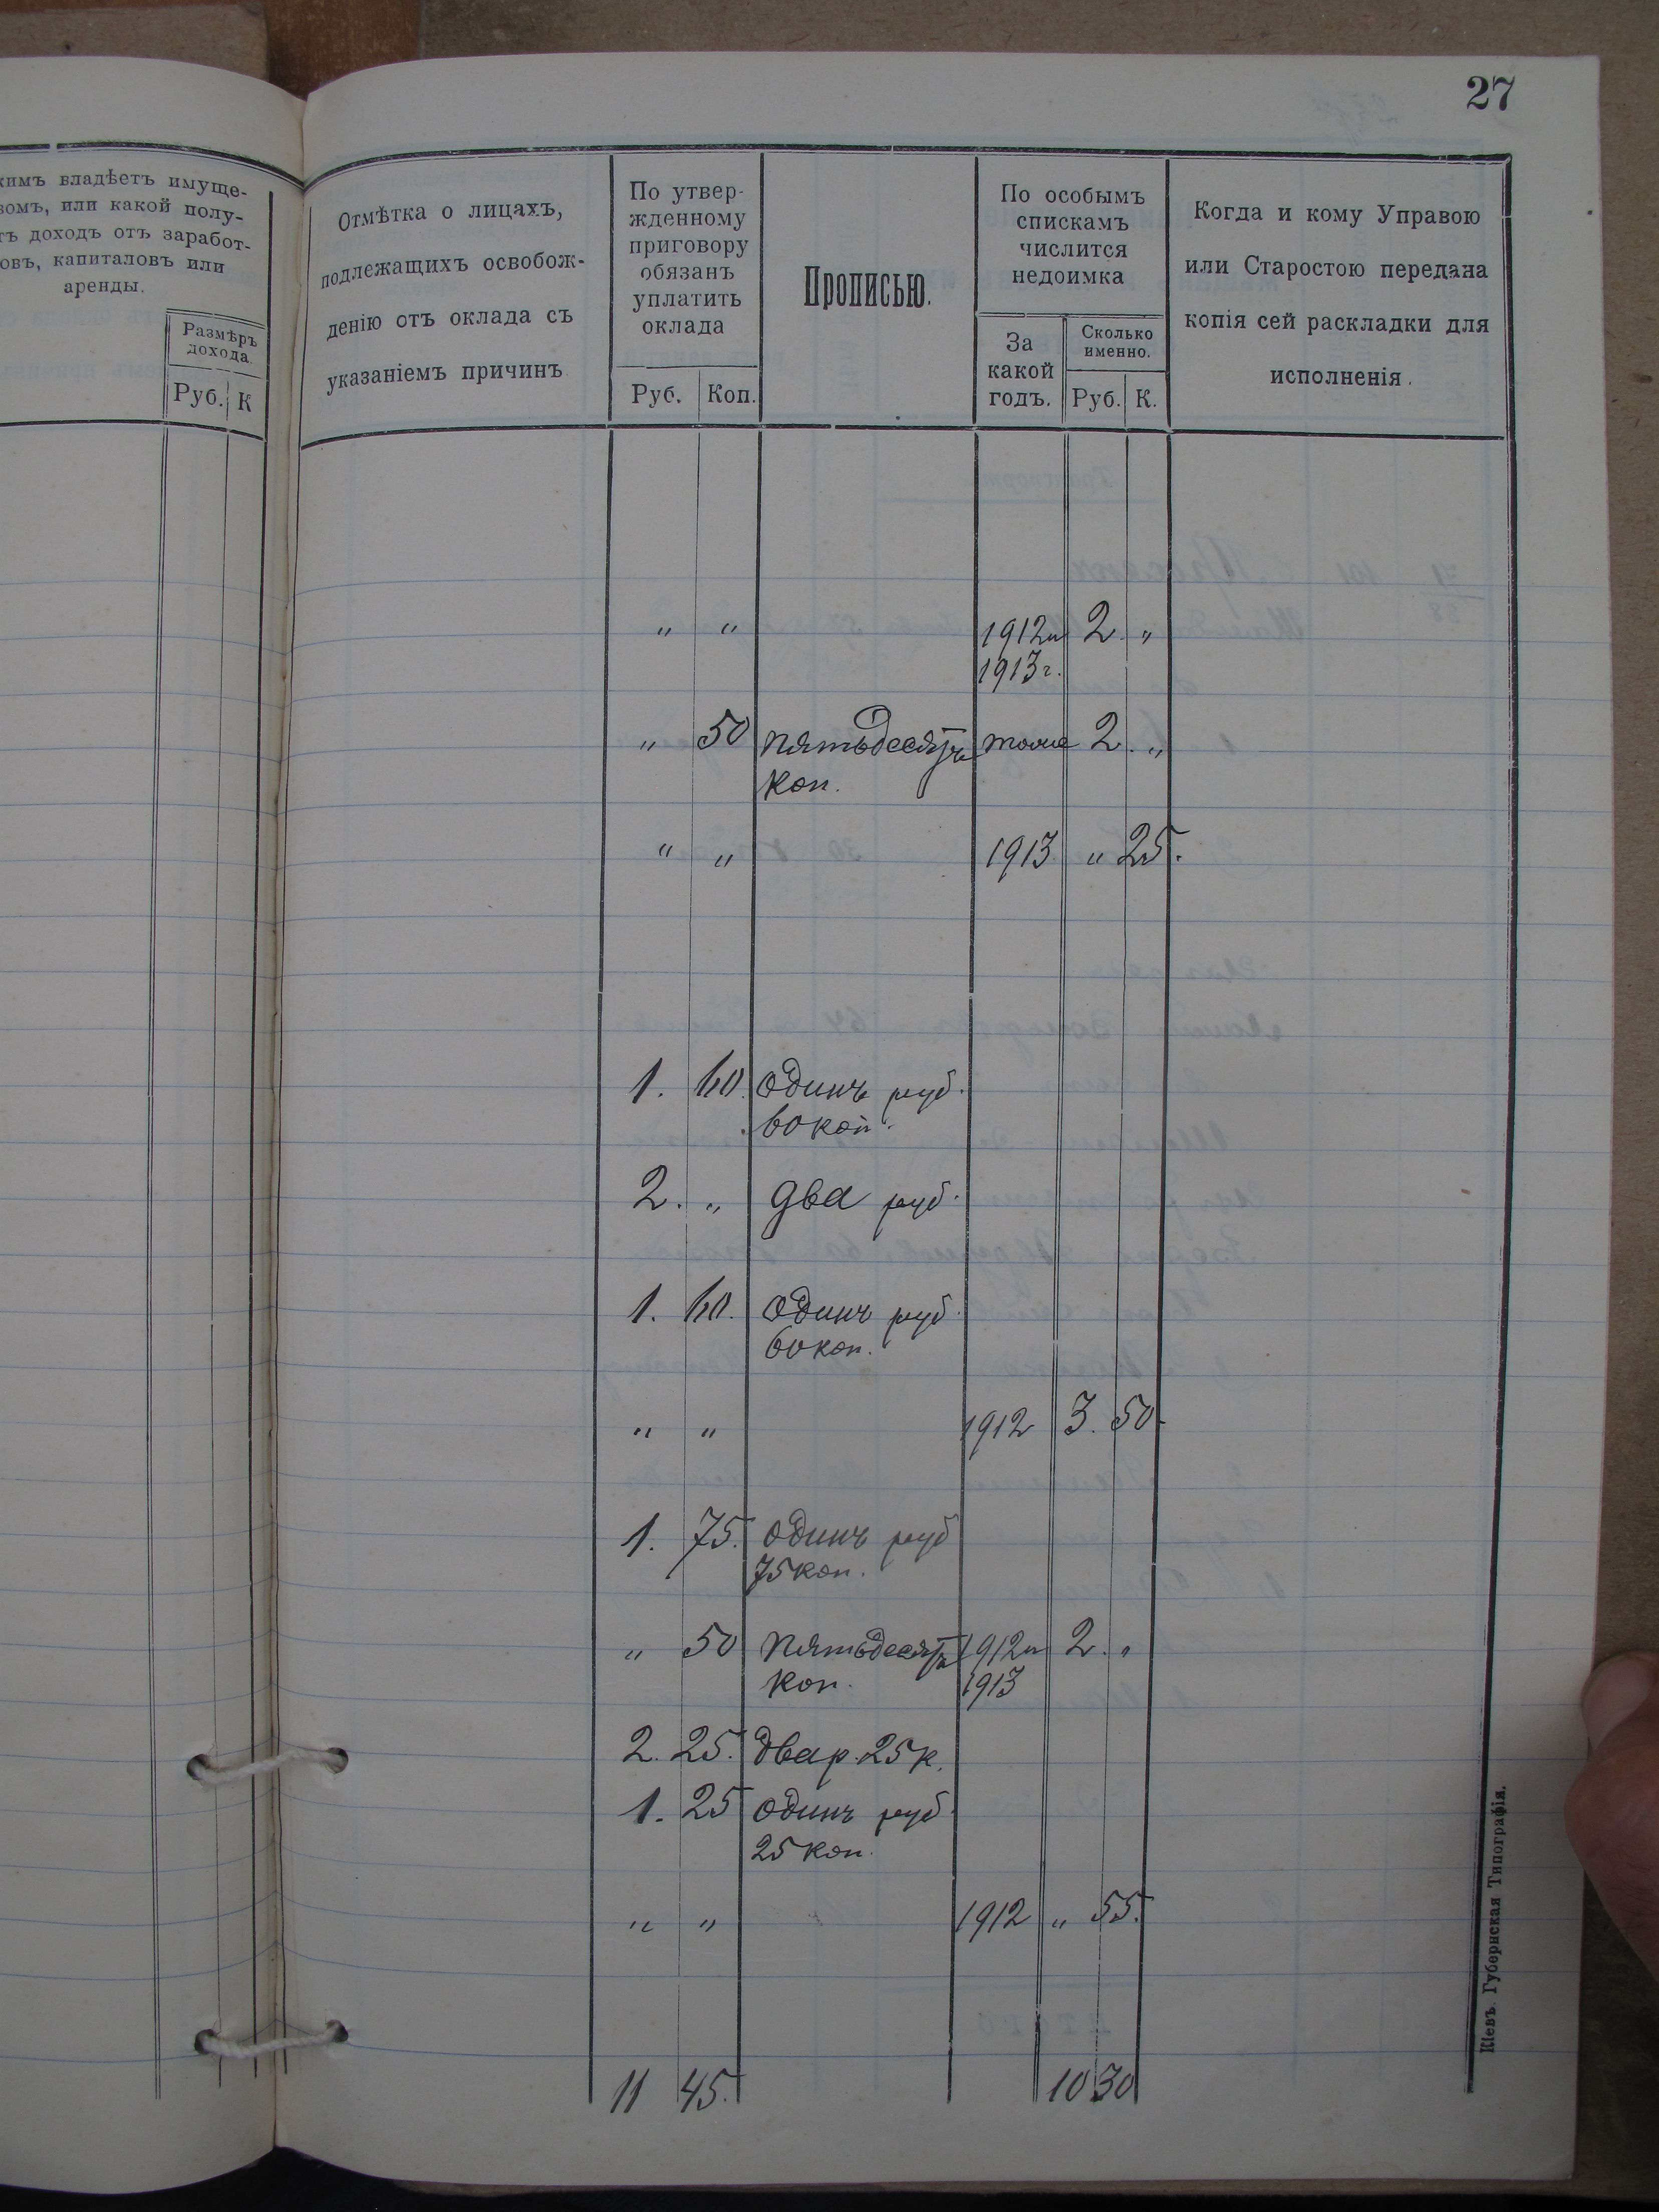 27
имъ владѣетъ имуще-
вомъ, или какой полу-
тъ доходъ отъ заработ-
овъ, капиталовъ или
аренды.
Размѣръ
дохода.
Руб. К
Отмѣтка о лицахъ,
подлежащихъ освобож-
денію отъ оклада съ
указаніемъ причинъ
По утвер-
жденному
приговору
обязанъ
уплатить
оклада
Руб. Коп.
Прописью.
По особымъ
спискамъ
числится
недоимка
За
какой
годъ.
Сколько
именно.
Руб. К.
Когда и кому Управою
или Старостою передана
копія сей раскладки для
исполненія.
„ „ 1912 и 2. „
1913 г.
„ 50 пятьдесятъ тоже 2. „
коп.
„ „ 1913 „ 25.
1. 60. одинъ руб.
60 коп.
2. „ два руб.
1. 60. одинъ руб.
60 коп.
„ „ 1912 3. 50
1. 75. одинъ руб
75 коп.
„ 50 пятьдесятъ 1912 и 2. „
коп. 1913
2. 25. два р. 25 к.
1. 25 одинъ руб.
25 коп.
„ „ 1912 „ 55.
11 45. 10 30
Кіевъ. Губернская Типографія.